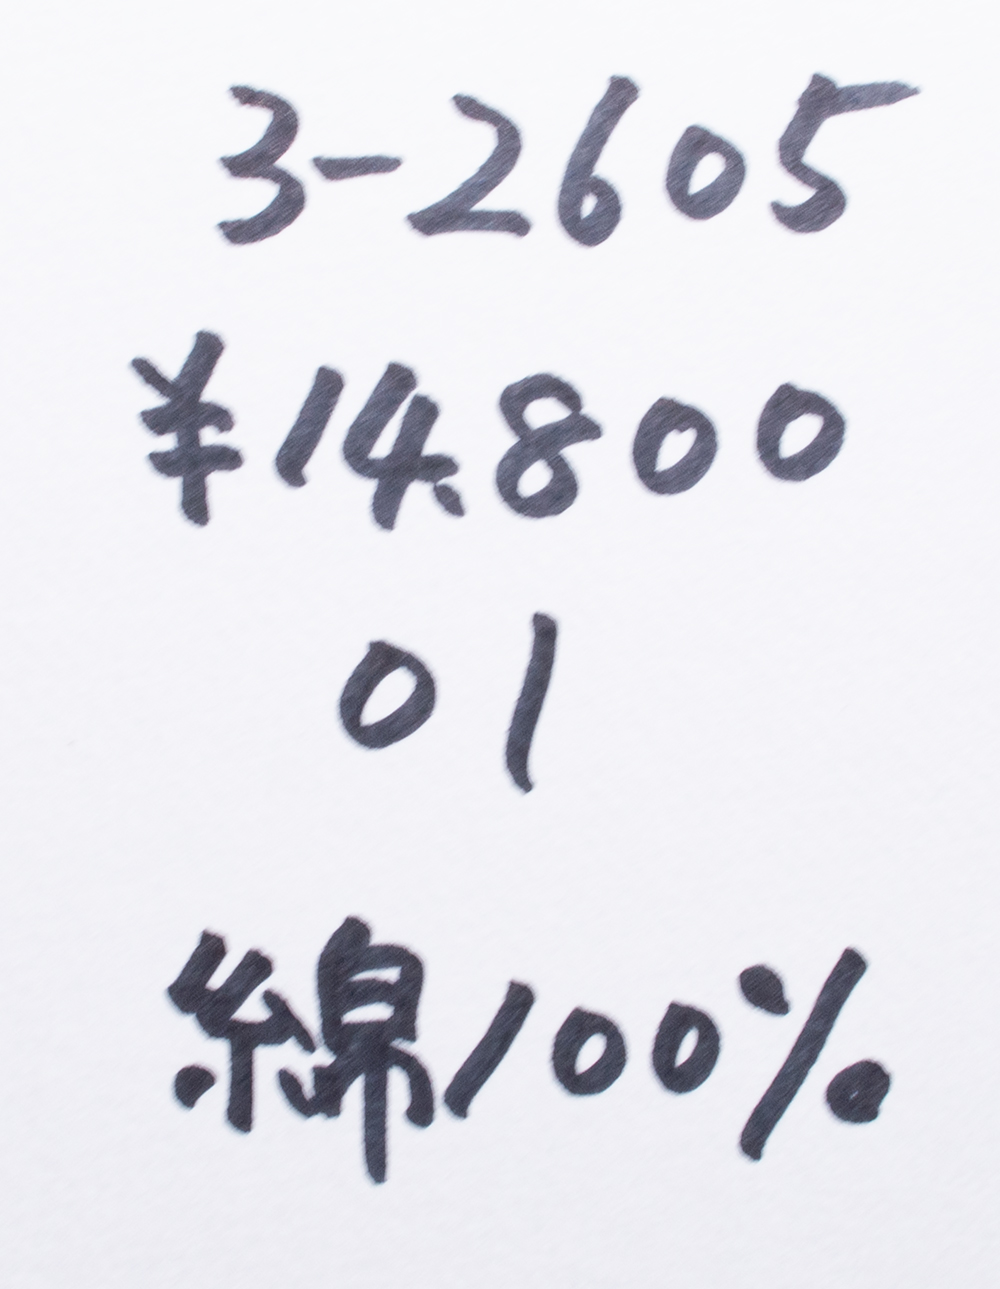 3-2605
¥14,800
01
綿100%